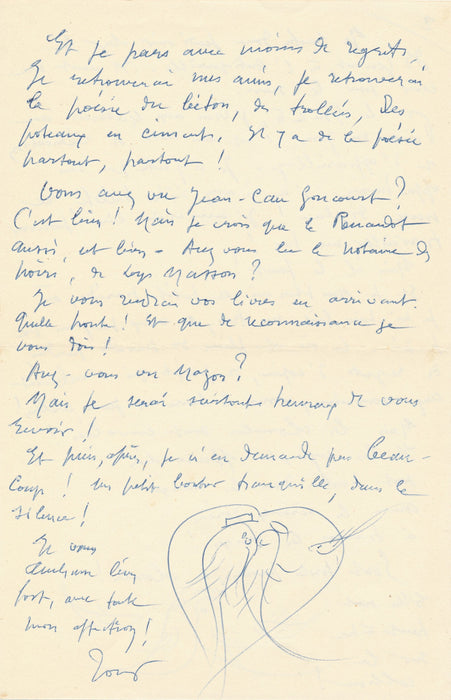 Et je pars avec moins de regrets,
Je retrouverai mes amis, je retrouverai
la poésie du béton, des trolleys, des
poteaux en ciment. Il y a de la poésie
partout, partout !
Vous avez vu Jean-Cau Goncourt ?
C'est bien ! Mais je crois que le Renaudot
aussi, est bien - Avez vous lu le notaire des
noirs, de Loys Masson ?
Je vous rendrai vos livres en arrivant.
Quelle honte ! Et que de reconnaissance je
vous dois !
Avez-vous vu Mazon ?
Mais je serai surtout heureux de vous
revoir !
Et puis, après, je n'en demande pas beau-
coup ! un petit tranquille, dans le
silence !
Je vous
embrasse bien
fort, avec toute
mon affection !